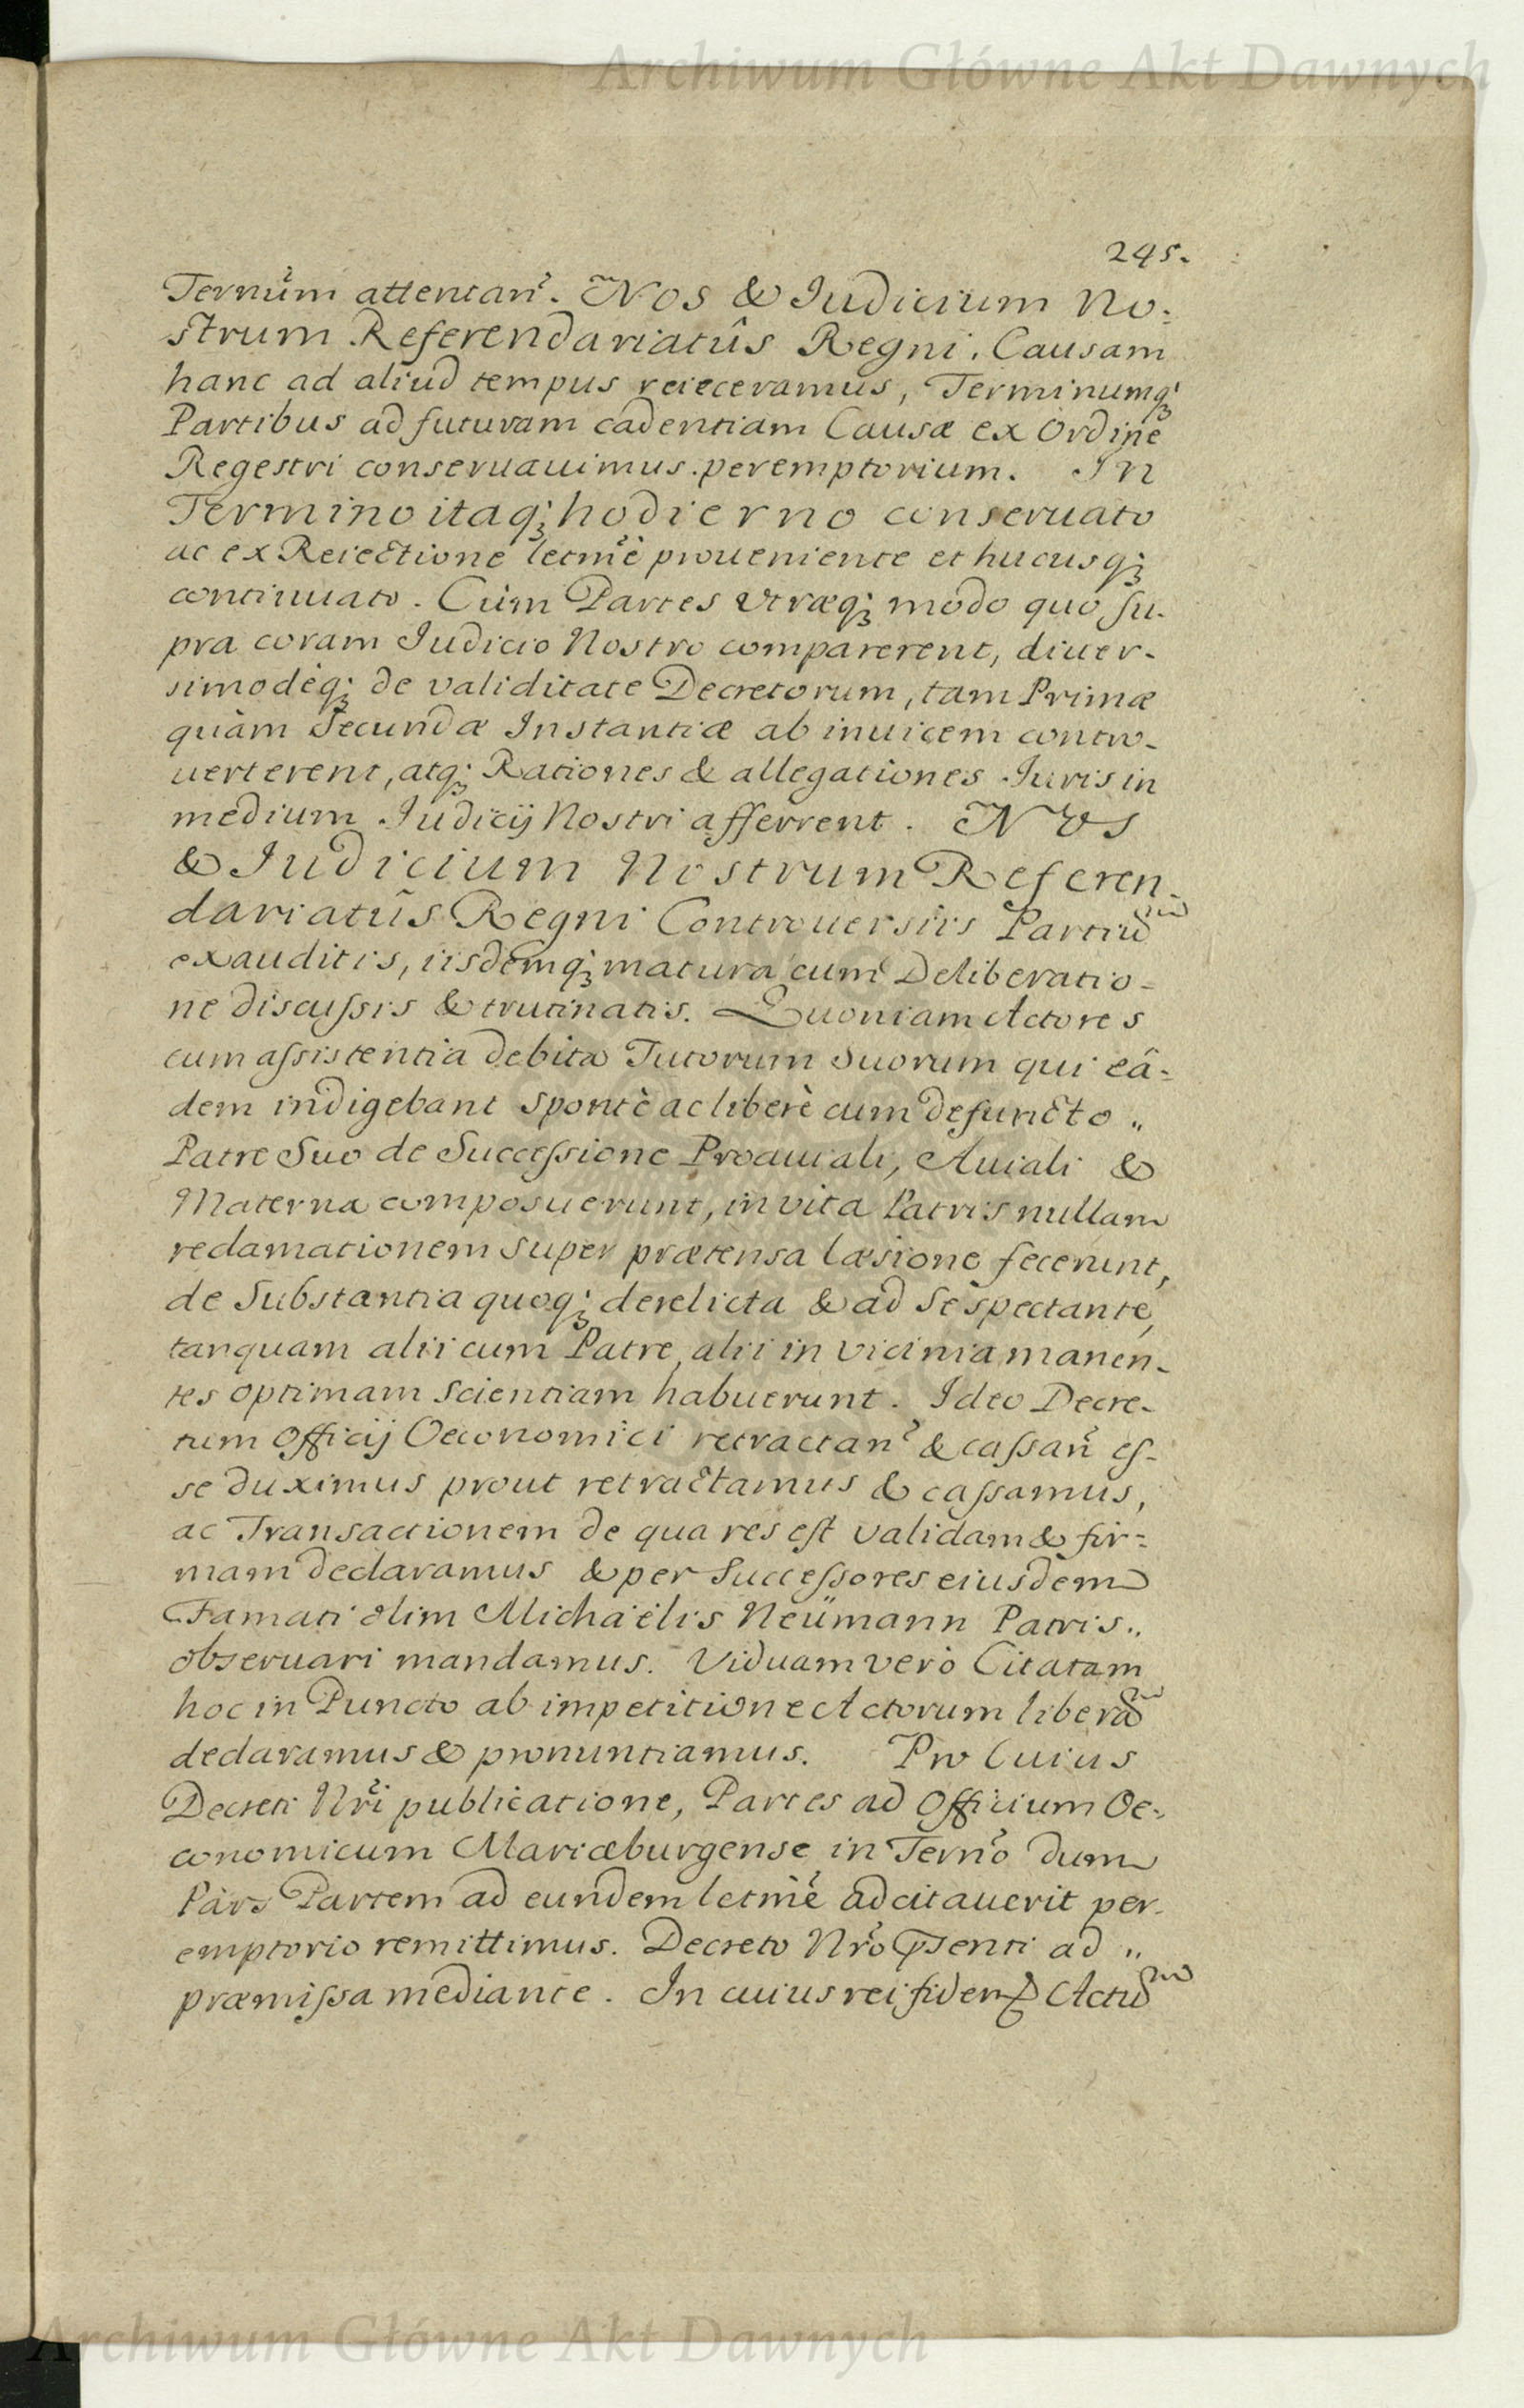 Archiwum Główne Akt Dawnych
245.
Ternũm attentañ. Nos & Iudicium No:
strum Referendariatûs Regni. Causam
hanc ad aliud tempus reieceramus, Terminumq;
Partibus ad futuram cadentiam Causæ ex Ordine
Regestri conseruauimus peremptorium. In
Termino itaq; hodierno conseruato
ac ex Reiectione letmè proueniente et hucusq;
continuato. Cùm Partes Vtræq; modo quo su-
pra coram Iudicio Nostro comparerent, diuer-
simodèq; de validitate Decretorum, tam Primæ
quàm Secundæ Instantiæ ab inuicem contro-
uerterent, atq; Rationes & allegationes Iuris in
medium Iudicij Nostri afferrent. Nos
& Iudicium Nostrum Referen-
dariatûs Regni Controuersiis Partiũ
exauditis, iisdemq; matura cum Deliberatio-
ne discussis & trutinatis. Quoniam Actores
cum assistentia debita Tutorum suorum qui eâ-
dem indigebant spontè ac liberè cum defuncto „
Patre Suo de Successione Proauiali, Auiali &
Materna composuerunt, in vita Patris nullam
reclamationem super prætensa læsione fecerunt,
de Substantia quoq; derelicta & ad Se spectante,
tanquam alii cum Patre, alii in vicinia manen-
tes optimam scientiam habuerunt. Ideo Decre-
tum Officij Oeconomici retractañ & cassañ es-
se duximus prout retractamus & cassamus,
ac Transactionem de qua res est validam & fir-
mam declaramus & per Successores eiusdem
Famati olim Michaëlis Neümann Patris „
obseruari mandamus. Viduam verò Citatam
hoc in Puncto ab impetitione Actorum liberã
declaramus & pronuntiamus. Pro Cuius
Decreti Nr̃i publicatione, Partes ad Officium Oe-
conomicum Mariæburgense in Terño dum
Pars Partem ad eundem letmè adcitauerit per-
emptorio remittimus. Decreto Nr̃o p̃senti ad „
præmissa mediante. In cuius rei fidem p̱ Actũ
Archiwum Główne Akt Dawnych